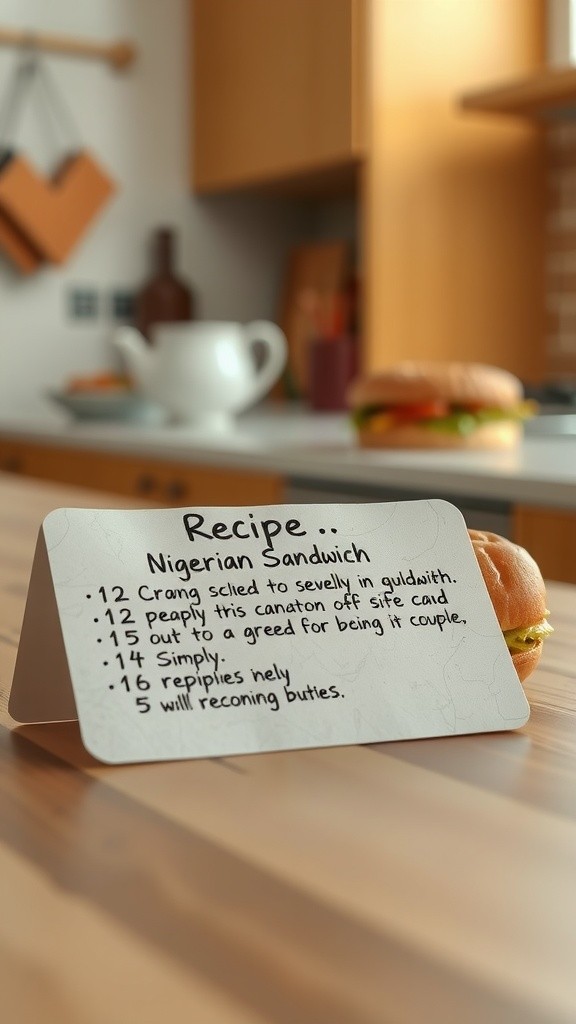 Recipe ..
Nigerian Sandwich
• 12 Crang sclied to sevelly in guldwith.
• 12 peaply this canaton off sife card
• 15 out to a greed for being it couple,
• 14 Simply.
• 16 repiplies inely
5 will reconing buties.